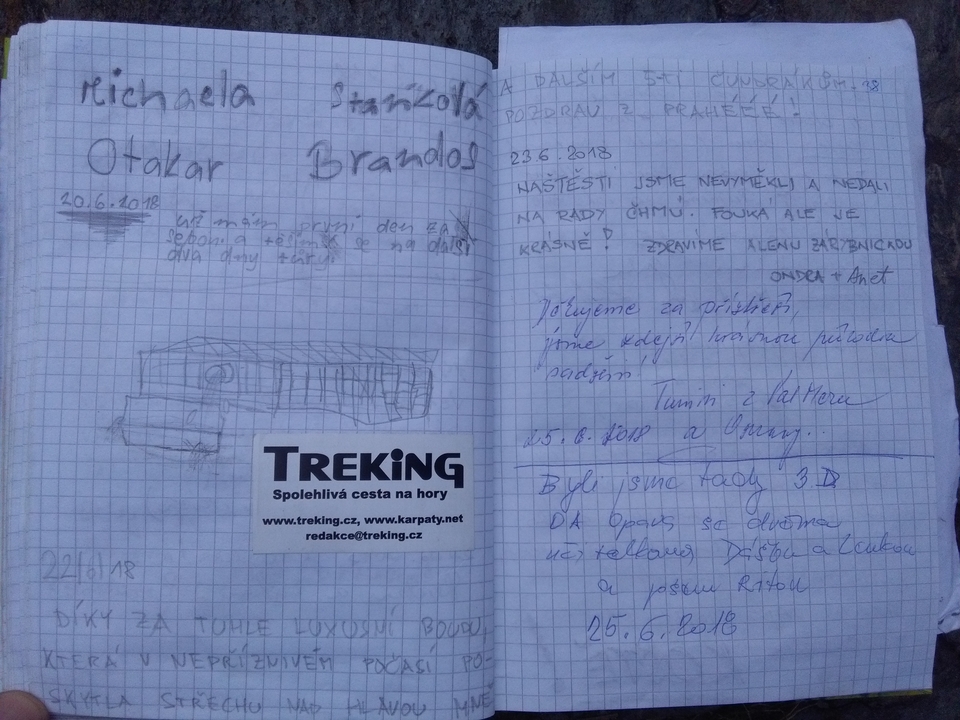 Michaela Staňková
Otakar Brandos
20.6.2018
už mám první den za
sebou a těším se na další
dva dny túry
TREKiNG
Spolehlivá cesta na hory
www.treking.cz, www.karpaty.net
redakce@treking.cz
22/6/18
DÍKY ZA TUHLE LUXUSNÍ BOUDU,
KTERÁ V NEPŘÍZNIVÉM POČASÍ PO-
SKYTLA STŘECHU NAD HLAVOU MNĚ
A DALŠÍM 5-TI ČUNDRÁKŮM.
POZDRAV Z PRAHÉÉÉ!
23.6.2018
NAŠTĚSTÍ JSME NEVYMĚKLI A NEDALI
NA RADY ČHMÚ. FOUKÁ ALE JE
KRÁSNĚ! ZDRAVÍME ALENU ZÁRYBNICKOU
ONDRA + Anet
Děkujeme za přístřeší,
jsme zdejší krásnou přírodou
nadšení
z ValMezu
25.6.2018 a Opavy..
Byli jsme tady 3.D
DA Opava se dvěma
učitelkama Dášou a Lenkou
a psem
25.6.2018